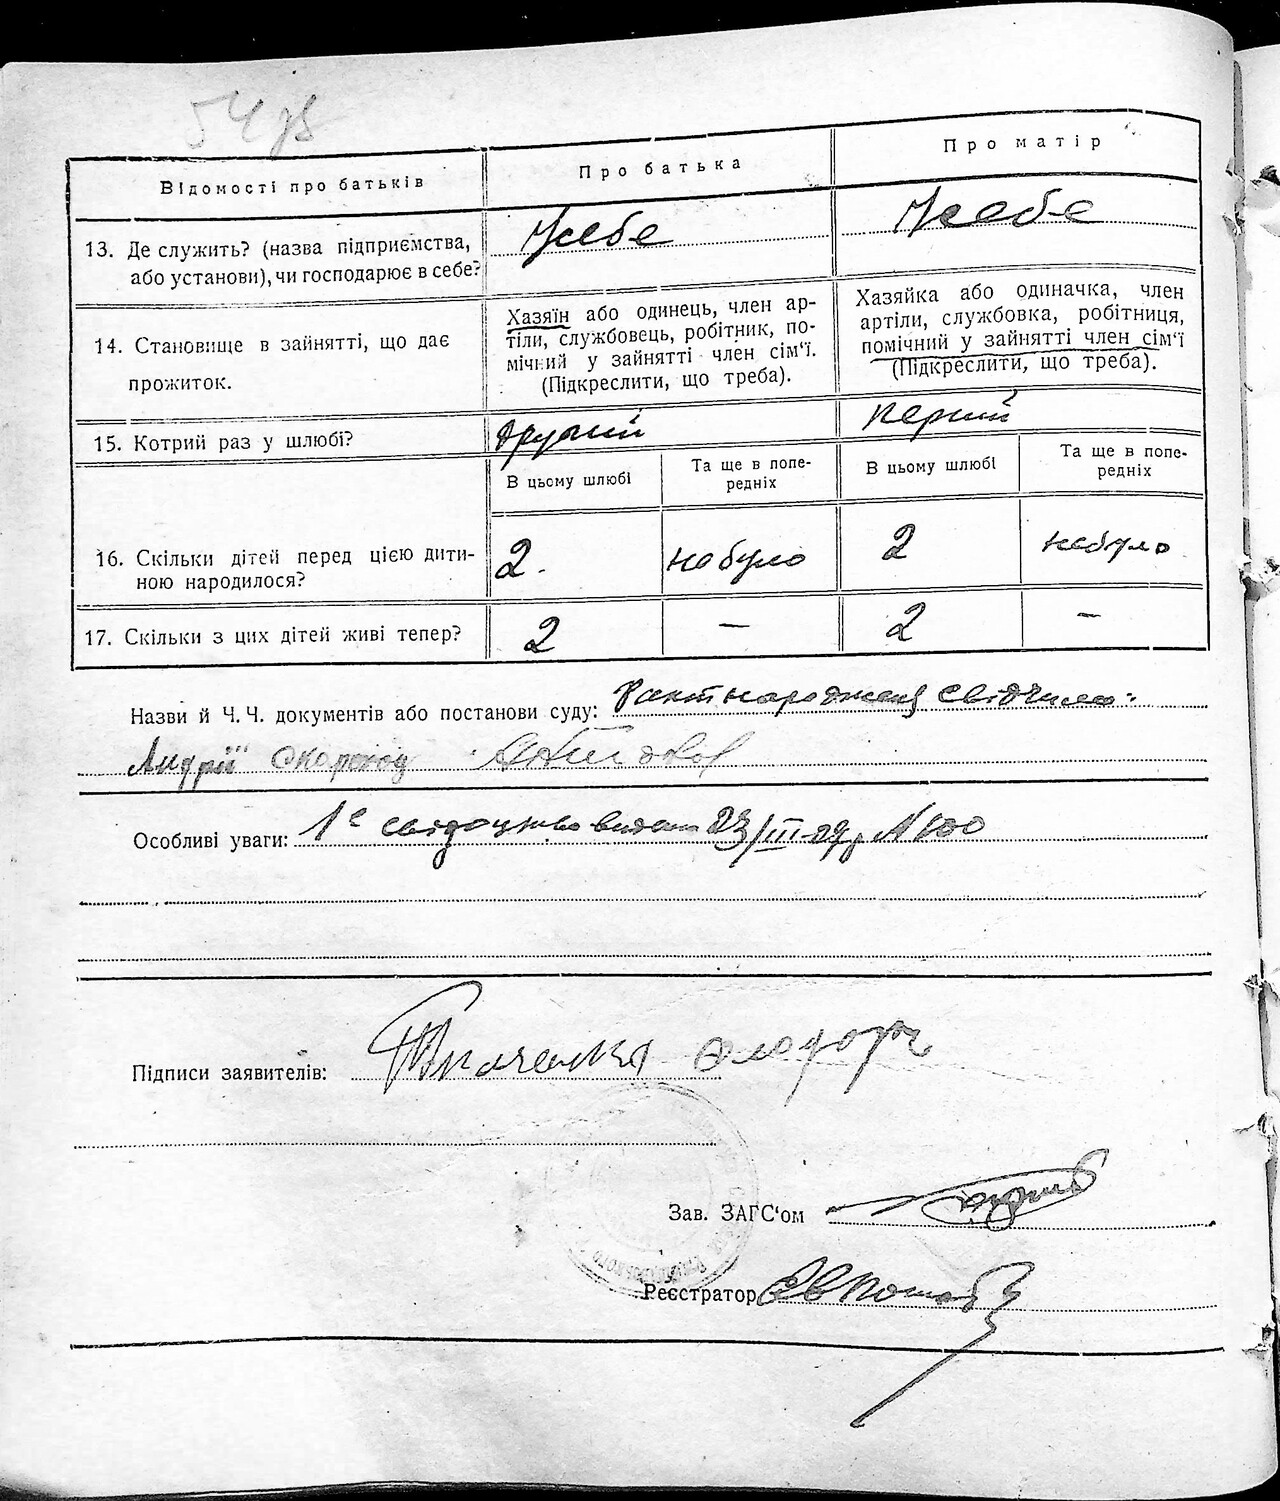 54 зв
Відомості про батьків
Про батька
Про матір
13. Де служить? (назва підприємства, або установи), чи господарює в себе?
У себе
У себе
14. Становище в зайнятті, що дає прожиток.
Хазяїн або одинець, член ар-
тіли, службовець, робітник, по-
мічний у зайнятті член сім'ї.
(Підкреслити, що треба).
Хазяйка або одиначка, член
артіли, службовка, робітниця,
помічний у зайнятті член сім'ї
(Підкреслити, що треба).
15. Котрий раз у шлюбі?
другий
перший
В цьому шлюбі
Та ще в попе-
редніх
В цьому шлюбі
Та ще в попе-
редніх
16. Скільки дітей перед цією дити-
ною народилося?
2.
небуло
2
небуло
17. Скільки з цих дітей живі тепер?
2
—
2
—
Назви й Ч. Ч. документів або постанови суду: Факт народження свідчили:
Андрій Скороход
Особливі уваги: 1е свідоцтво видано 23/III-29 р N 100
Підписи заявителів: Ткаченко
Зав. ЗАГС'ом
Реєстратор